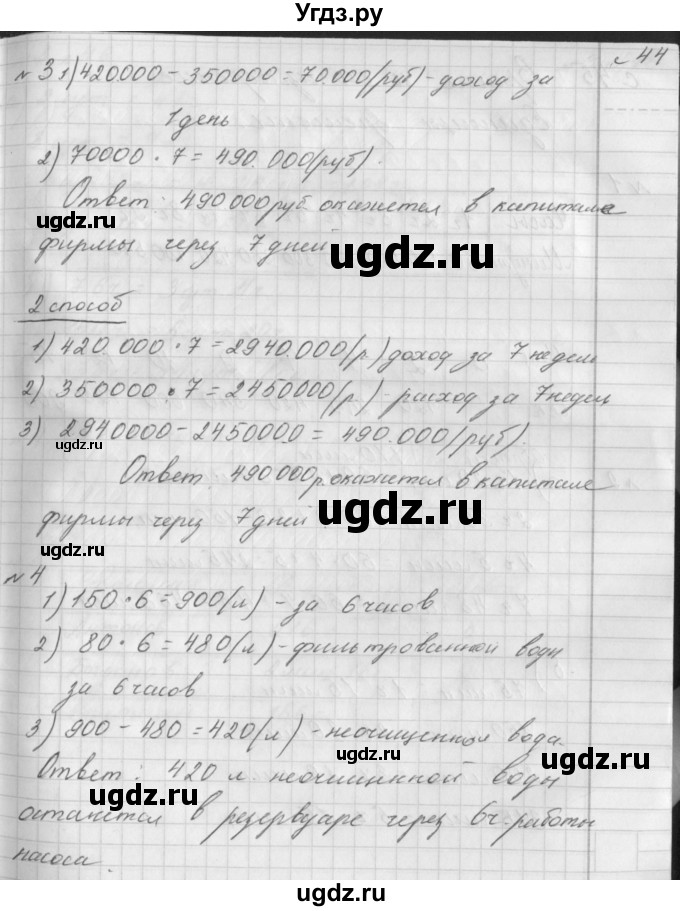 Угдз.ру
с 44
№ 3 1) 420.000 - 350000 = 70.000 (руб) - доход за
1 день
2) 70000 · 7 = 490.000 (руб).
Ответ: 490000 руб. окажется в капитале
фирмы через 7 дней
ugdz.ru
ugdz.ru
ugdz.ru
2 способ
1) 420.000 · 7 = 2940.000 (р.) доход за 7 недел
ugdz.ru
2) 350000 · 7 = 2450000 (р.) - расход за 7 недел
3) 2940000 - 2450000 = 490.000 (руб).
ugdz.ru
Ответ 490000 р. окажется в капитале
фирмы через 7 дней
ugdz.ru
ugdz.ru
№ 4
1) 150 · 6 = 900 (л) - за 6 часов
2) 80 · 6 = 480 (л) - фильтрованной воды
ugdz.ru
за 6 часов
3) 900 - 480 = 420 (л) - неочищенная вода.
ugdz.ru
Ответ: 420 л неочищнной воды
ugdz.ru
ugdz.ru
останется в резервуаре через 6 ч. работы
насоса.
ugdz.ru